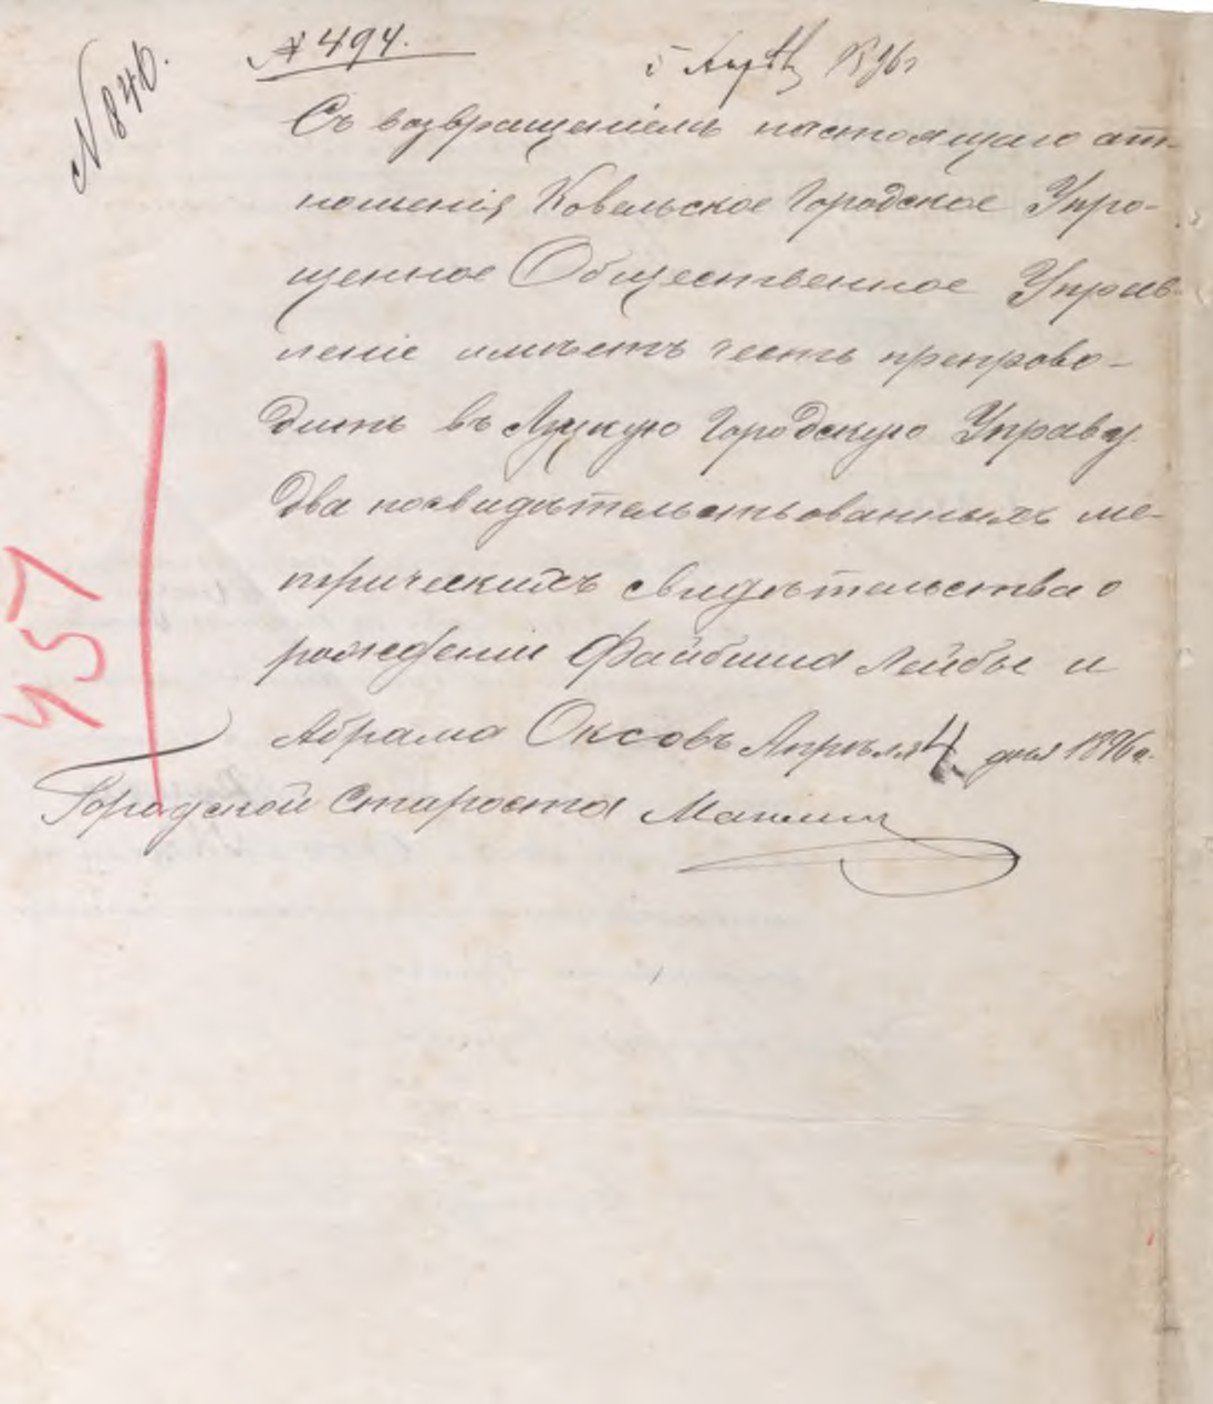 № 840.
№ 494.
5 1896 г
Съ возвращеніемъ настоящаго от-
ношенія Ковельское Городское Упро-
щенное Общественное Управ-
леніе имѣетъ честь препрово-
дить въ Луцкую Городскую Управу
два посвидѣтельствованныхъ ме-
трическихъ свидѣтельства о
рожденіи Файбиша Лейбы и
Абрама Оксовъ Апрѣля 4 дня 1896 г.
Городской Староста
457